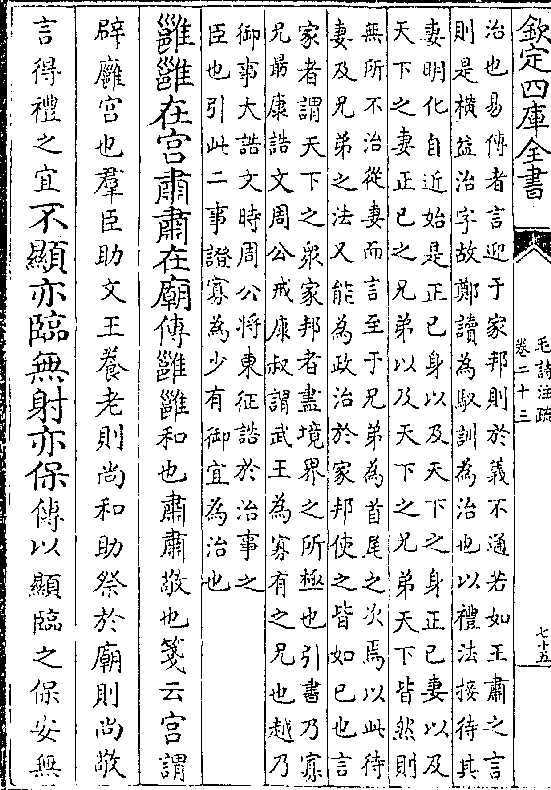 欽定四庫全書
毛詩注疏
卷二十三
七十五
治也易傳者言迎于家邦則於義不通若如王肅之言
則是橫益治字故鄭讀為馭訓為治也以禮法接待其
妻明化自近始是正已身以及天下之身正已妻以及
天下之妻正已之兄弟以及天下之兄弟天下皆然則
無所不治從妻而言至于兄弟為首尾之次焉以此待
妻及兄弟之法又能為政治於家邦使之皆如已也言
家者謂天下之衆家邦者盡境界之所極也引書乃寡
兄朂康誥文周公戒康叔謂武王為寡有之兄也越乃
御事大誥文時周公將東征誥於治事之
臣也引此二事證寡為少有御宜為治也
雝雝在宫肅肅在廟傳雝雝和也肅肅敬也箋云宫謂
辟廱宫也羣臣助文王養老則尚和助祭於廟則尚敬
言得禮之宜不顯亦臨無射亦保傳以顯臨之保安無